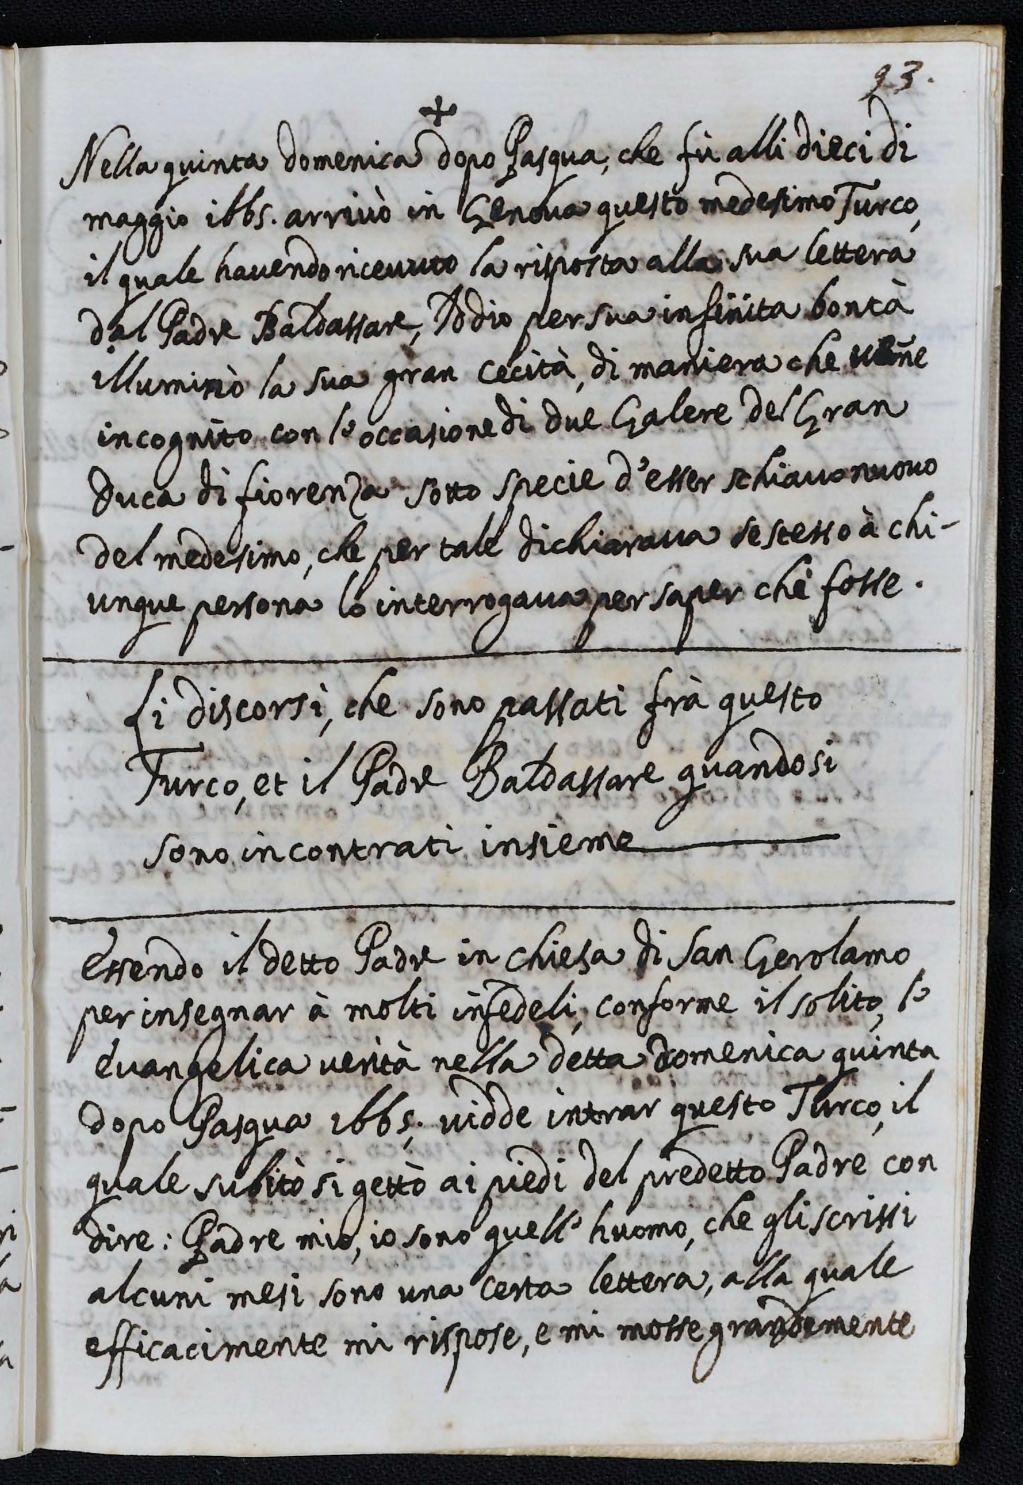 93.
Nella quinta domenica dopo Pasqua, che fù alli dieci di
maggio 1665. arrivò in Genova questo medesimo Turco,
il quale havendo ricevuto la risposta alla sua lettera
dal Padre Baldassare, Iddio per sua infinita bontà
illuminò la sua gran cecità, di maniera che uẽne
incognito con l'occasione di due Galere del Gran
Duca di fiorenza sotto specie d'esser schiavo nuovo
del medesimo, che per tale dichiaraua se stesso à chi-
unque persona lo interrogaua per saper chè fosse.
Li discorsi, che sono passati frà questo
Turco, et il Padre Baldassare quando si
sono incontrati insieme
Essendo il detto Padre in chiesa di San Gerolamo
per insegnar à molti infedeli, conforme il solito, l'
euangelica uerità nella detta domenica quinta
dopo Pasqua 1665. uidde intrar questo Turco, il
quale subitò si gettò ai piedi del predetto Padre con
dire: Padre mio, io sono quell' huomo, che gli scrissi
alcuni mesi sono una certa lettera, alla quale
efficacimente mi rispose, e mi mosse grandemente